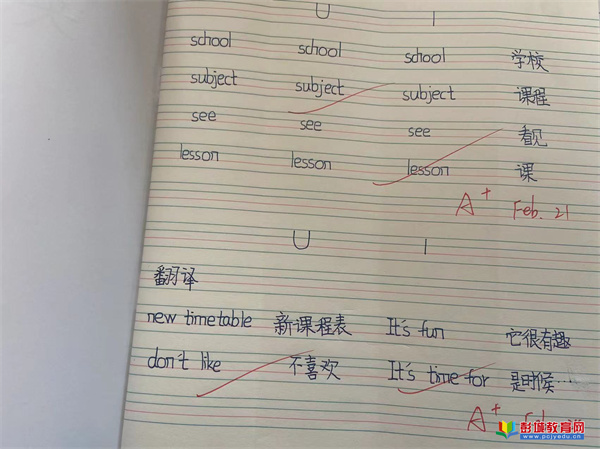 U 1
school school school 学校
subject subject subject 课程
see see see 看见
lesson lesson lesson 课
A+ Feb. 21
U 1
翻译
new timetable 新课程表 It's fun 它很有趣
don't like 不喜欢 It's time for 是时候…
A+
彭城教育网
www.pcjyedu.cn